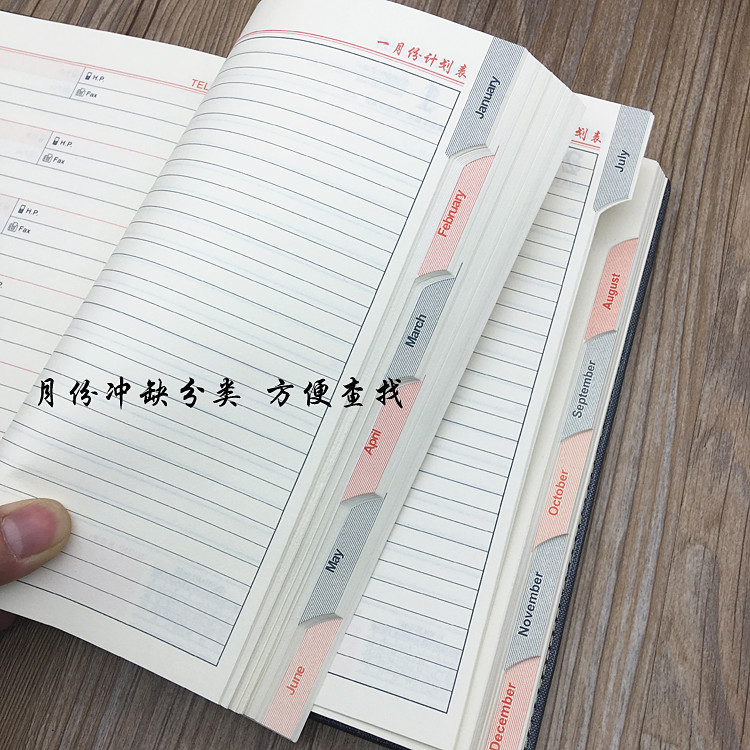 TEL
H.P.
Fax
H.P.
Fax
H.P.
Fax
一月份计划表
January
February
March
April
May
June
划表
July
August
September
October
November
December
月份冲缺分类 方便查找